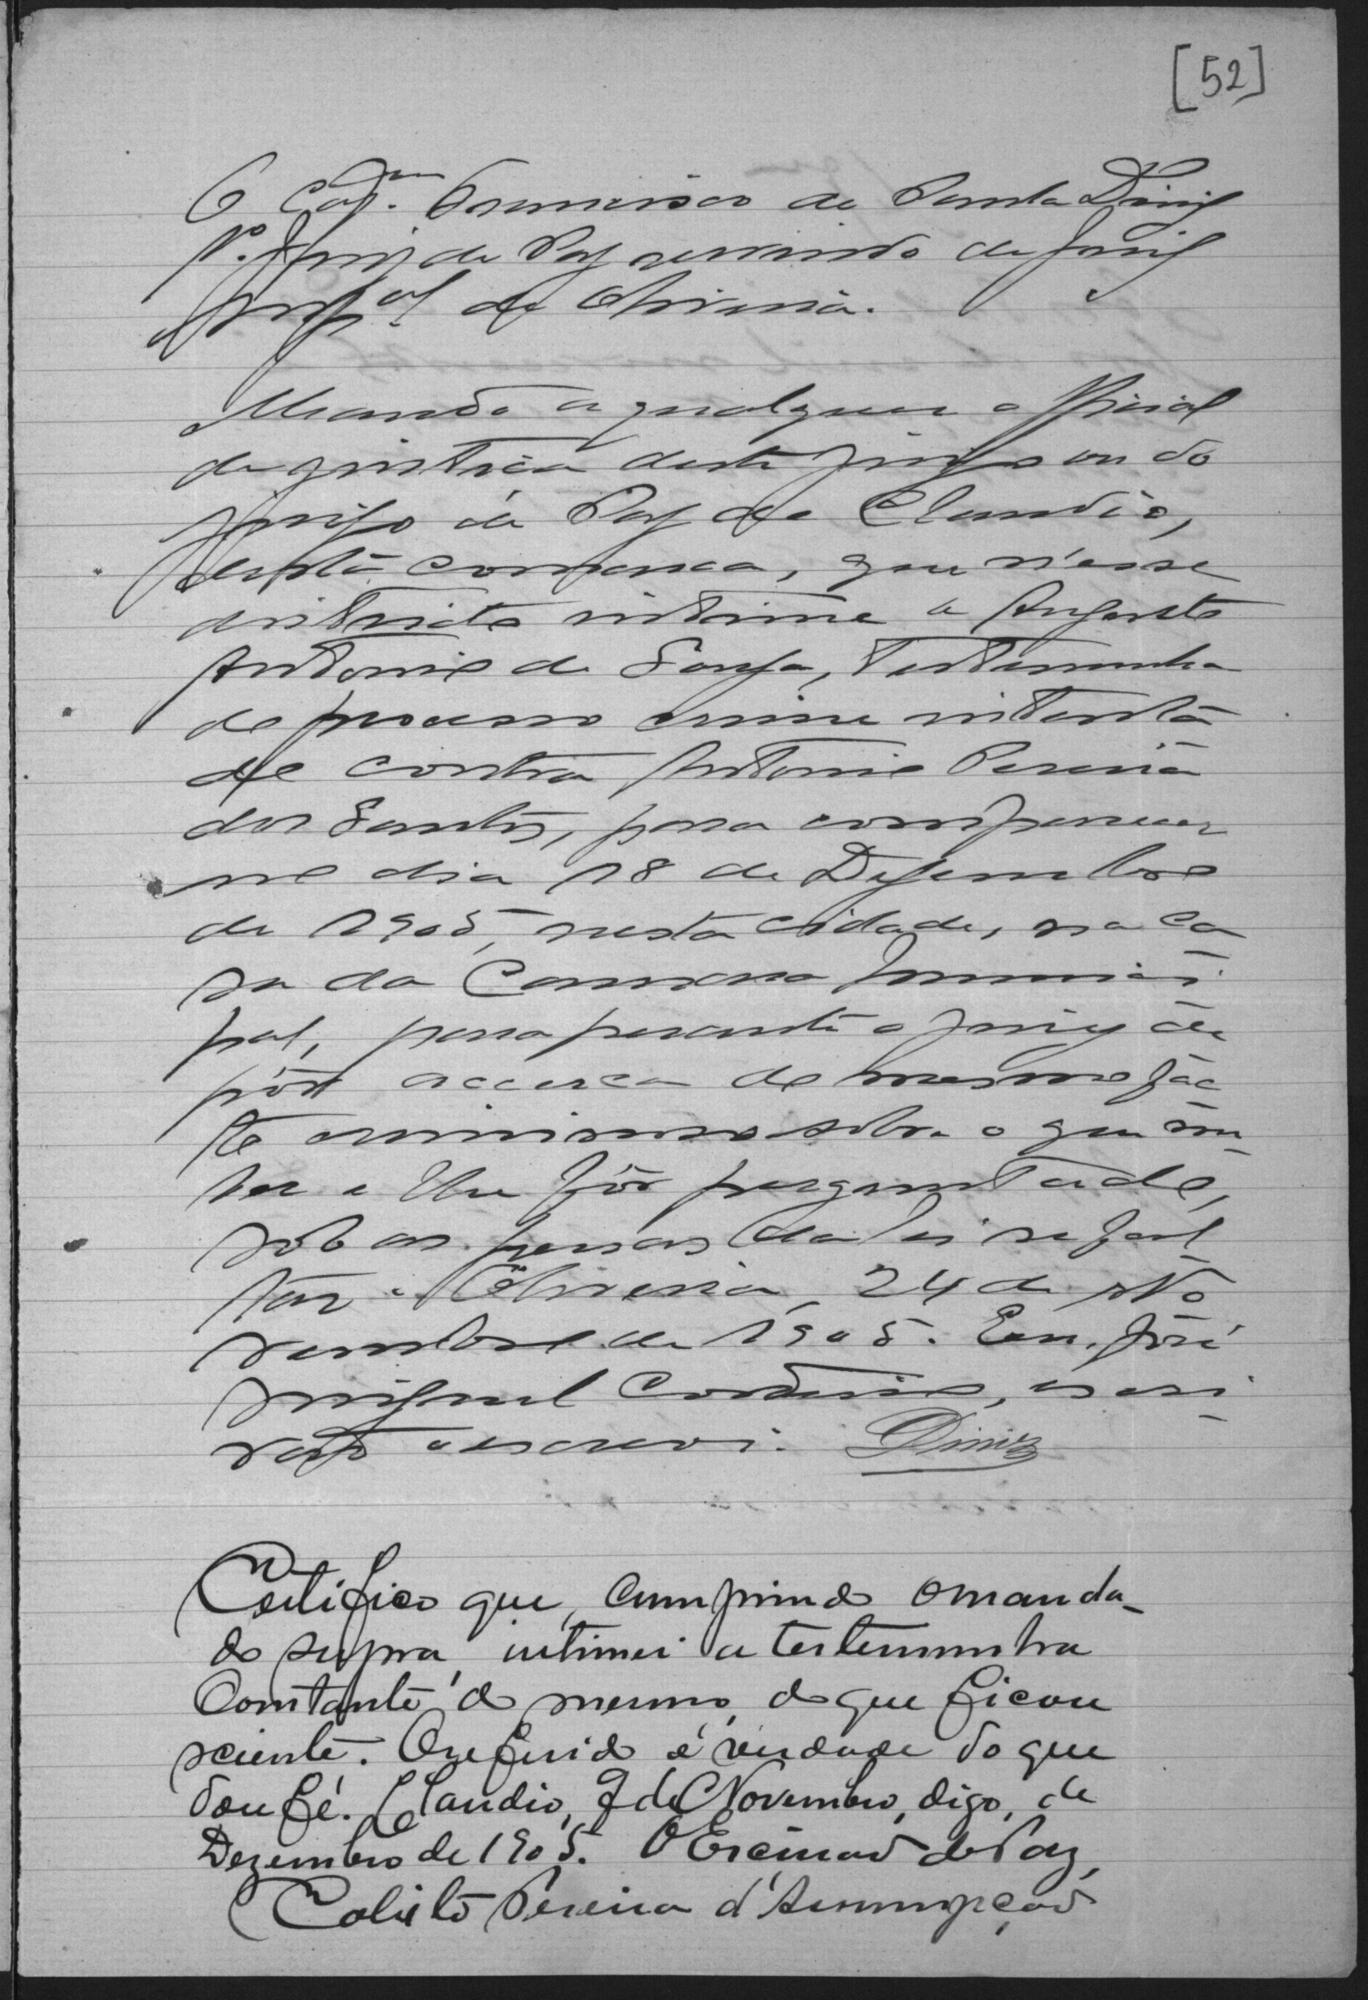 [52]
O Cap.m Francisco de Paula Diniz
1º. Juiz de Paz servindo de Juiz
Mpal de Oliveira.
Mando a qualquer official
de justiça deste juizo ou do
juizo de Paz do Claudio,
desta comarca, que n'esse
districto intime a Augusto
Antonio de Souza, testemunha
do processo crime intenta
do contra Antonio Pereira
dos Santos, para comparecer
no dia 18 de Dezembro
de 1905, nesta cidade, na ca
sa da Camara Munici
pal, para perante o Juiz de
pôr accerca do mesmo fac
to criminoso sobre o que sou
ber e lhe fôr perguntado,
sob as penas da lei se fal
tar. Oliveira, 24 de No
vembro de 1905. Eu, José
Miguel Cordeiro, escri
vão o escrevi. Diniz
Certifico que, cumprindo o manda-
do supra, intimei a testemunha
Constante do mesmo, do que ficou
sciente. O referido é verdade do que
dou fé. Claudio, 2 de Novembro, digo, de
Dezembro de 1905. O Escrivão de Paz,
Calisto Pereira d'Assumpção